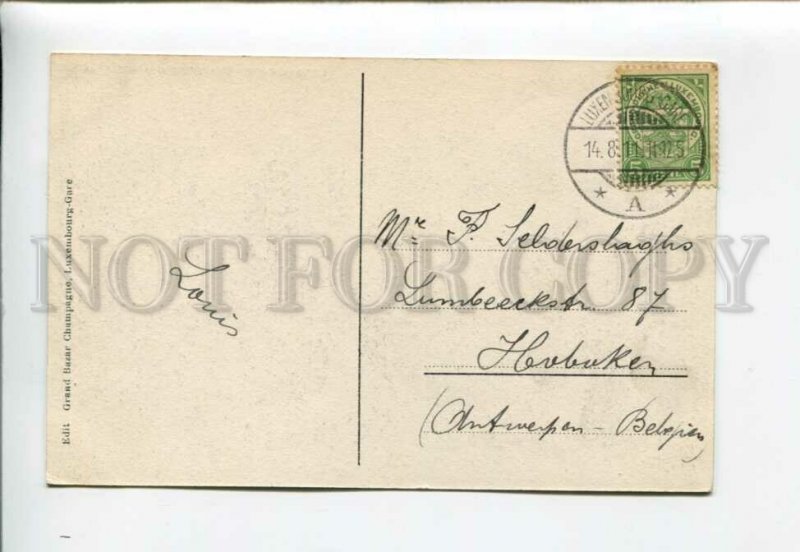 Edit Grand Bazar Champagne, Luxembourg-Gare
Louis
14.8.11.11-12.5
A
5
Mr F. Seldershaghs
Lumbeeckstr. 87
Hoboken
(Antwerpen - Belgien)
NOT FOR COPY